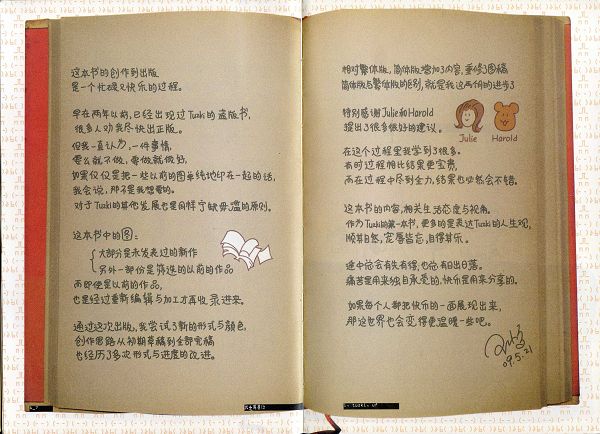 这本书的创作到出版
是一个忙碌又快乐的过程。
早在两年以前，已经出现过Tuzki的盗版书，
很多人劝我尽快出正版。
但我一直认为，一件事情，
要么就不做，要做就做好，
如果仅仅是把一些以前的图单纯地印在一起的话，
我会说，那不是我想要的。
对于Tuzki的其他发展也是同样宁缺毋滥的原则。
这本书中的图：
大部分是未发表过的新作
另外一部份是筛选的以前的作品
而即使是以前的作品，
也是经过重新编辑与加工才再收录进来。
通过这次出版，我尝试了新的形式与颜色，
创作思路从初期草稿到全部完稿
也经历了多次形式与进度的改进。
相对繁体版，简体版增加了内容，重修了图稿
简体版与繁体版的区别，就是我这两个月的进步了
特别感谢Julie和Harold
提出了很多很好的建议。
Julie
Harold
在这个过程里我学到了很多。
有时过程相比结果更宝贵，
而在过程中尽到全力，结果也必然会不错。
这本书的内容，相关生活态度与视角。
作为Tuzki的第一本书，更多的是表达Tuzki的人生观，
顺其自然，宠辱皆忘，自得其乐。
途中总会有失有得，也总有日出日落。
痛苦是用来独自承受的，快乐是用来分享的。
如果每个人都把快乐的一面展现出来，
那这世界也会变得更温暖一些吧。
09.5.21